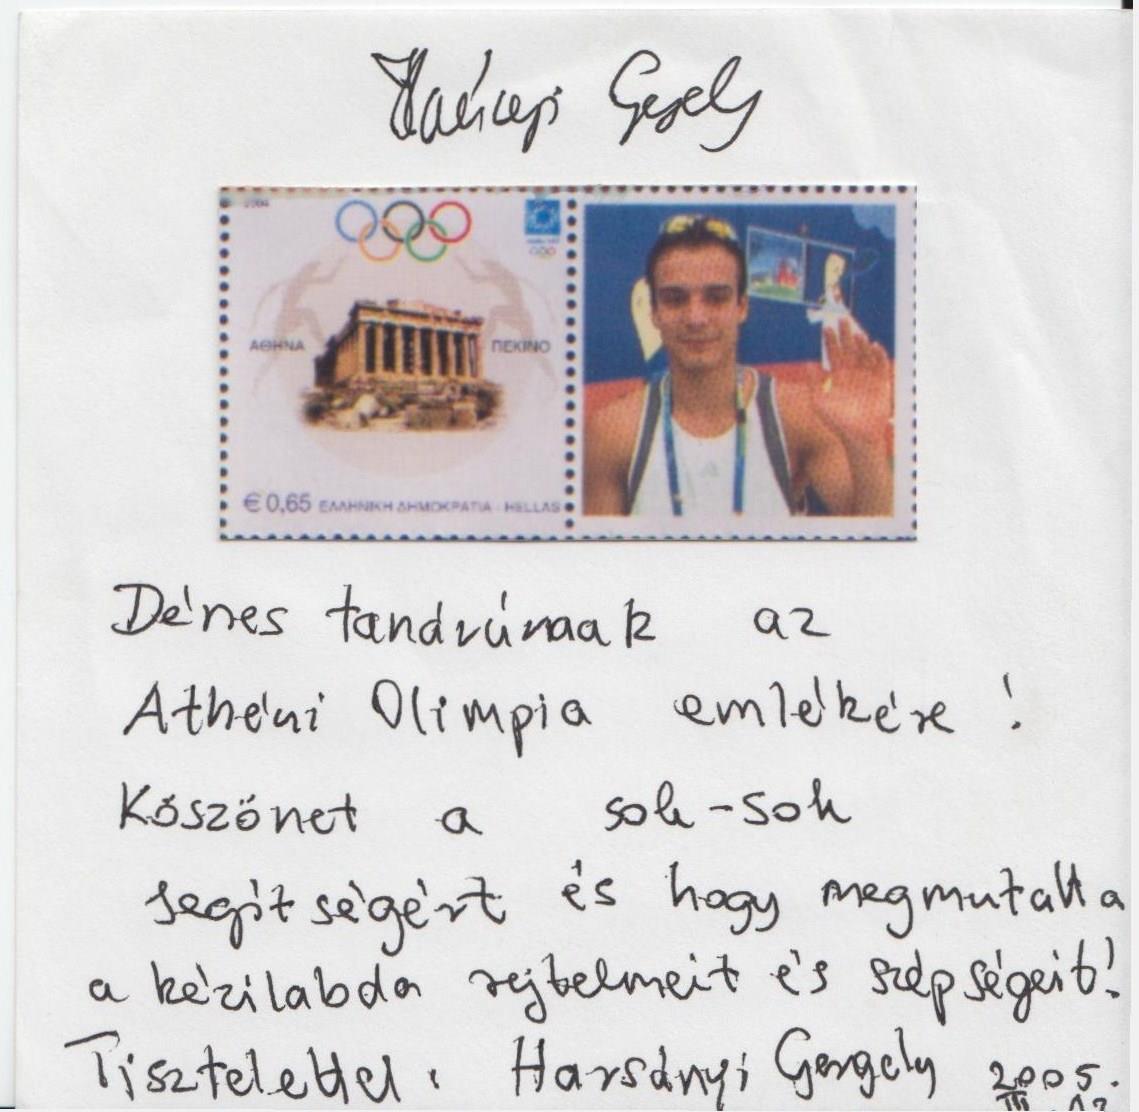 Harsányi Gergely
2004
ΑΘΗΝΑ
ΠΕΚΙΝΟ
€0,65 ΕΛΛΗΝΙΚΗ ΔΗΜΟΚΡΑΤΙΑ - HELLAS
Dénes tanárúrnaak az
Athéni Olimpia emlékére!
Köszönet a sok-sok
segítségért és hogy megmutatta
a kézilabda rejtelmeit és szépségeit!
Tisztelettel: Harsányi Gergely 2005.
III